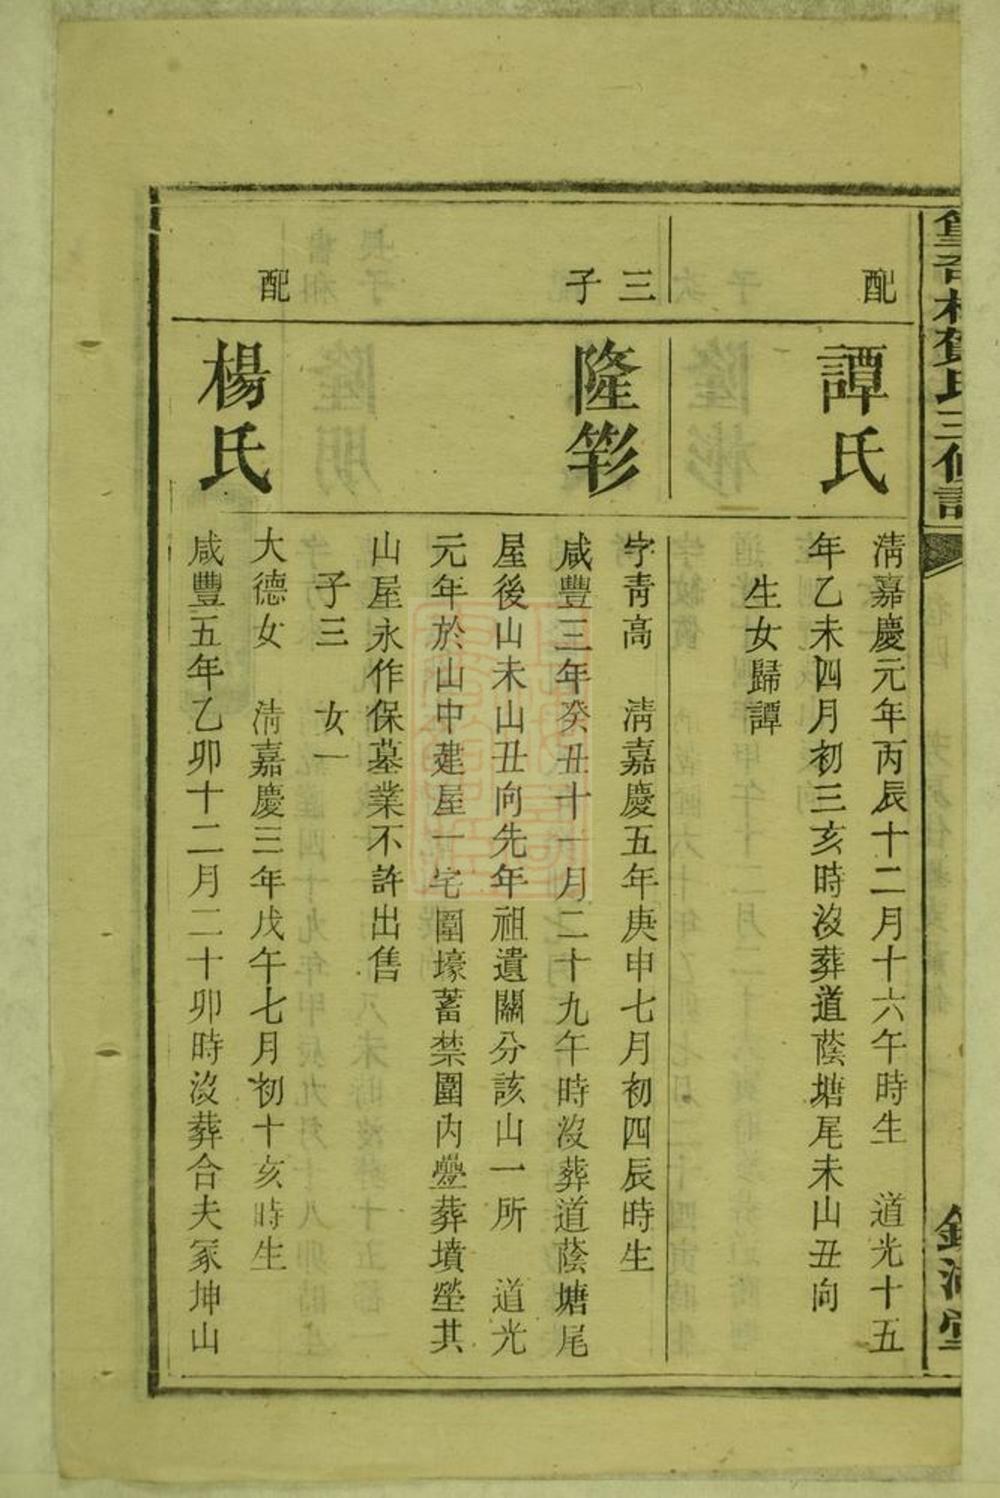 賀氏三修譜
配
譚氏
清嘉慶元年丙辰十二月十六午時生　道光十五
年乙未四月初三亥時沒葬道蔭塘尾未山丑向
生女歸譚
三子
隆彣
字靑高　清嘉慶五年庚申七月初四辰時生
咸豐三年癸丑十一月二十九午時沒葬道蔭塘尾
屋後山未山丑向先年祖遺關分該山一所　道光
元年於山中建屋一宅圍壕蓄禁圍內疊葬墳塋其
山屋永作保墓業不許出售
子三　女一
配
楊氏
大德女　清嘉慶三年戊午七月初十亥時生
咸豐五年乙卯十二月二十卯時沒葬合夫冢坤山